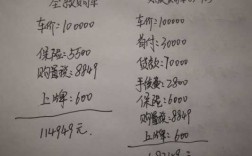 全款购车
车价:100000
保险:5500
购置税:8849
上牌:600
114949元
车价:100000
首付:30000
贷款:70000
手续费:2800
保险:6000
购置税:8849
上牌:600